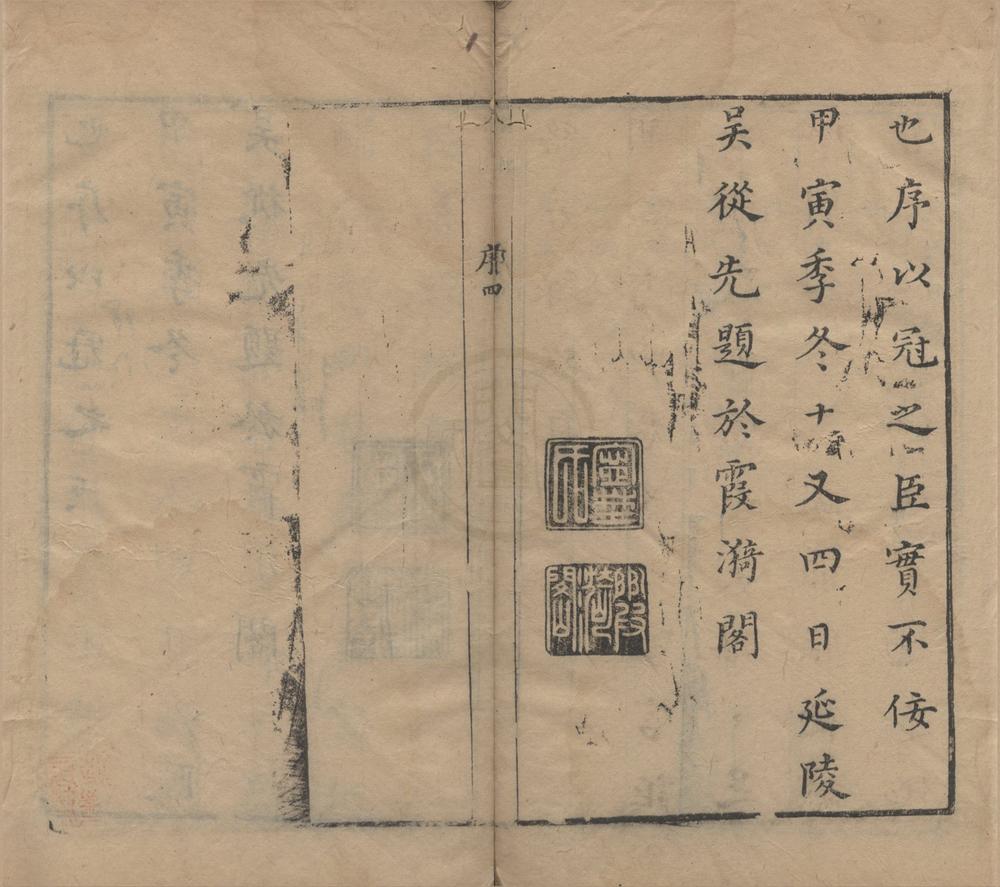 也序以冠之臣實不佞
甲寅季冬十又四日延陵
吳從先題於霞漪閣
序四